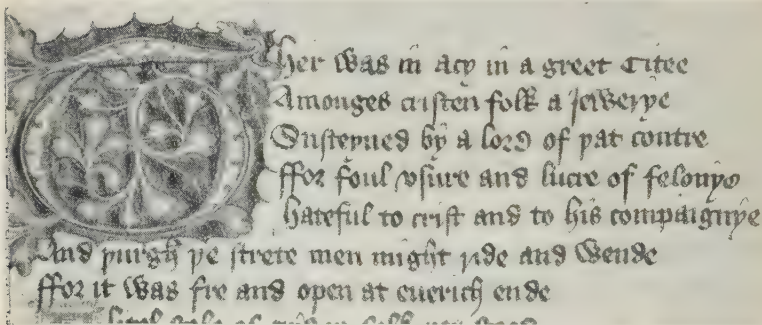 Ther was in acy in a greet Citee
Amonges cristen folk a jewerye
Susteyned by a lord of þat contre
ffor foul vsure and lucre of felonye
hateful to crist and to his compaignye
And þurgh þe strete men might ride and wende
ffor it was fre and open at euerich ende